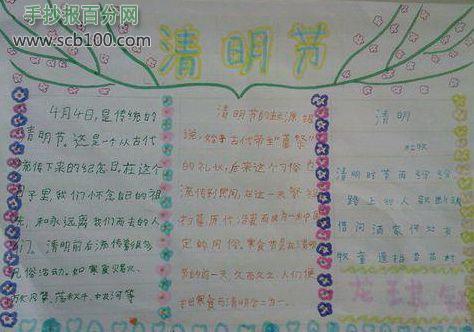 手抄报百分网
www.scb100.com
清明节
4月4日,是传统的
清明节。这是一个从古代
流传下来的纪念日,在这个
日子里,我们怀念自己的祖
先,和永远离我们而去的人
们。清明前后流传着很多
民俗活动。如寒食
放风筝、荡秋千、
清明节的起源,据
说,始于古代帝王"墓祭"
的礼仪,后来这个习俗
流传到民间,在这一天祭祖
扫墓历代沿袭而成为一种固
定的风俗。寒食节是在清明
节的前一天,久而久之,人们便
把寒食与清明合二为一。
清明
杜牧
清明时节雨纷纷
路上行人欲断魂
借问酒家何处有
牧童遥指杏花村